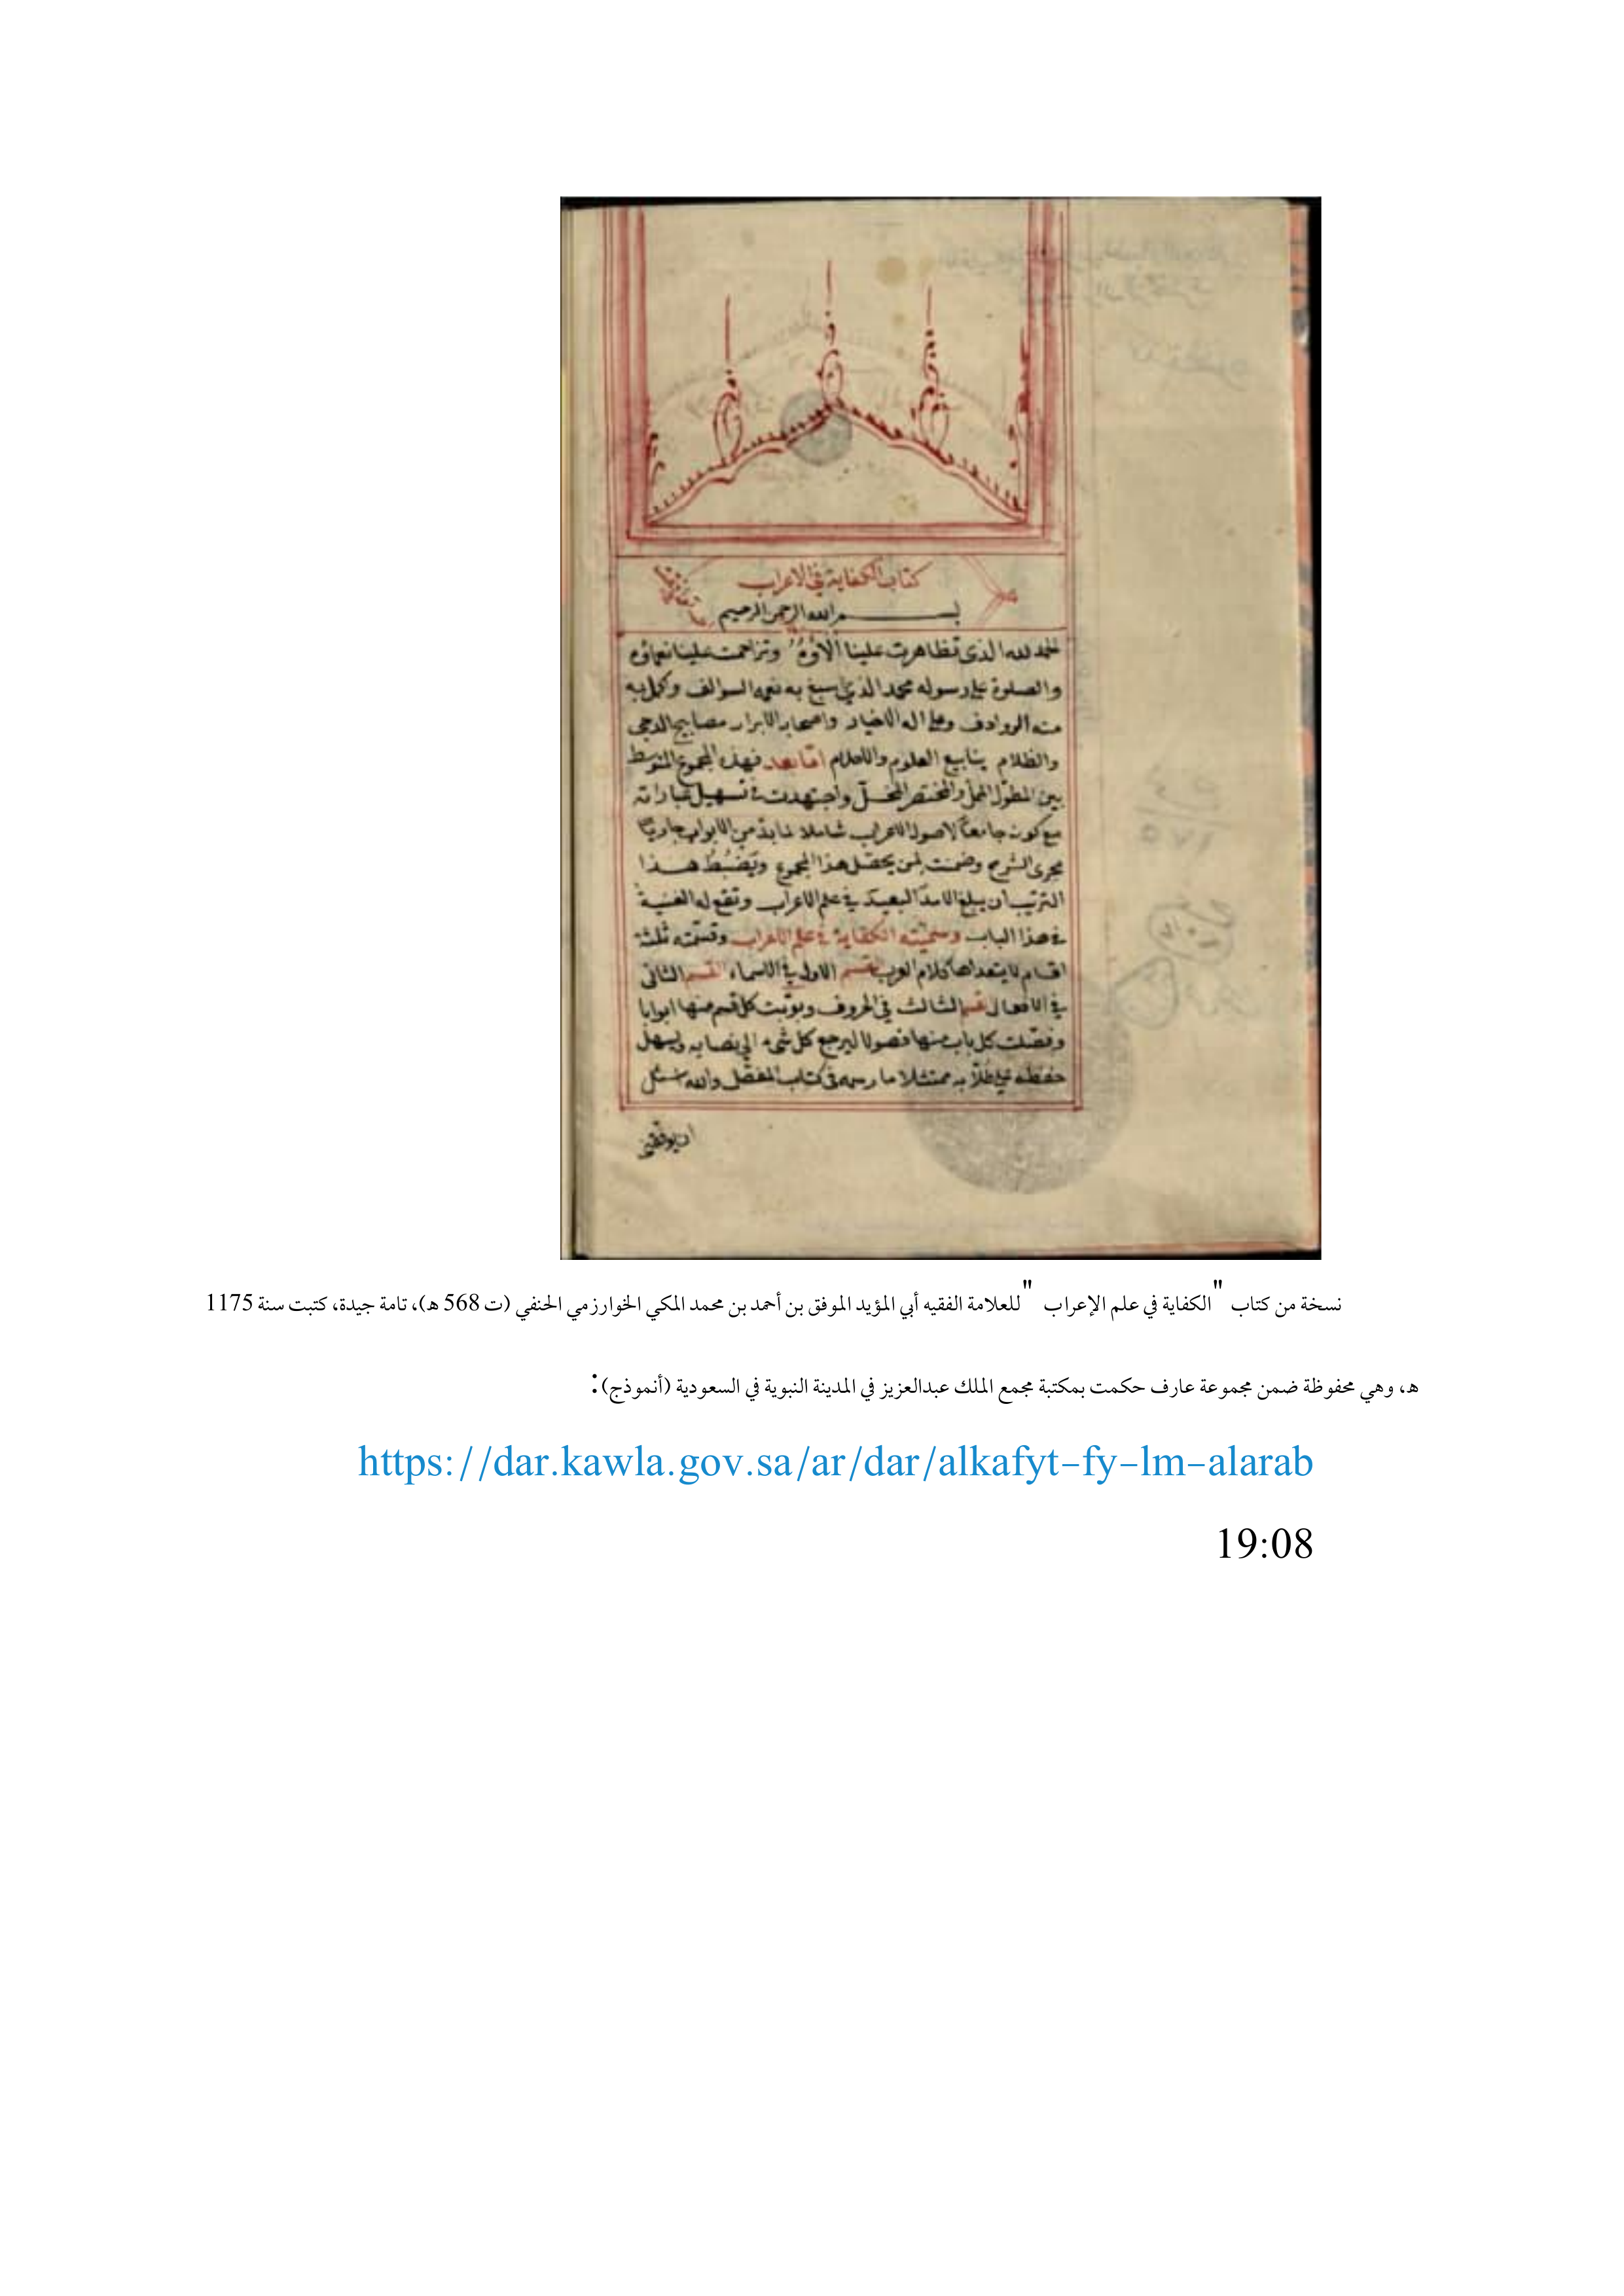 كتاب الكفاية في الاعراب
بسم الله الرحمن الرحيم
الحمد لله الذى تظاهرت علينا آلاؤه وتزاحمت علينا نعماؤه
والصلوة على رسوله محمد الذى اسبغ به نعمه السوالف وكمل به
مننه الروادف وعلى اله الاخيار واصحابه الابرار مصابيح الدجى
والظلام ينابيع العلوم والاحلام اما بعد فهذا المجموع المتوسط
بين المطول الممل والمختصر المخل واجتهدت فى تسهيل عباراته
مع كونه جامعا لاصول الاعراب شاملا من الابواب جاريا
مجرى الشرح وضمنت لمن يحصل هذا المجموع ويضبط هذا
الترتيب ان يبلغ الامد البعيد في علم الاعراب وتقع له الغنية
في هذا الباب وسميته الكفاية في علم الاعراب وقسمته ثلثة
اقسام لا يتعداها كلام العرب القسم الاول في الاسماء القسم الثانى
في الافعال القسم الثالث في الحروف وبوبت كل قسم منها ابوابا
وفصلت كل باب منها فصولا ليرجع كل شىء الى نصابه ويسهل
حفظه على طلابه ممتثلا ما رسمه فى كتاب المفصل والله اسئل
ان يوفقني
نسخة من كتاب "الكفاية في علم الإعراب "للعلامة الفقيه أبي المؤيد الموفق بن أحمد بن محمد المكي الخوارزمي الحنفي (ت 568 ه)، تامة جيدة، كتبت سنة 1175
ه، وهي محفوظة ضمن مجموعة عارف حكمت بمكتبة مجمع الملك عبدالعزيز في المدينة النبوية في السعودية (أنموذج):
https://dar.kawla.gov.sa/ar/dar/alkafyt-fy-lm-alarab
19:08